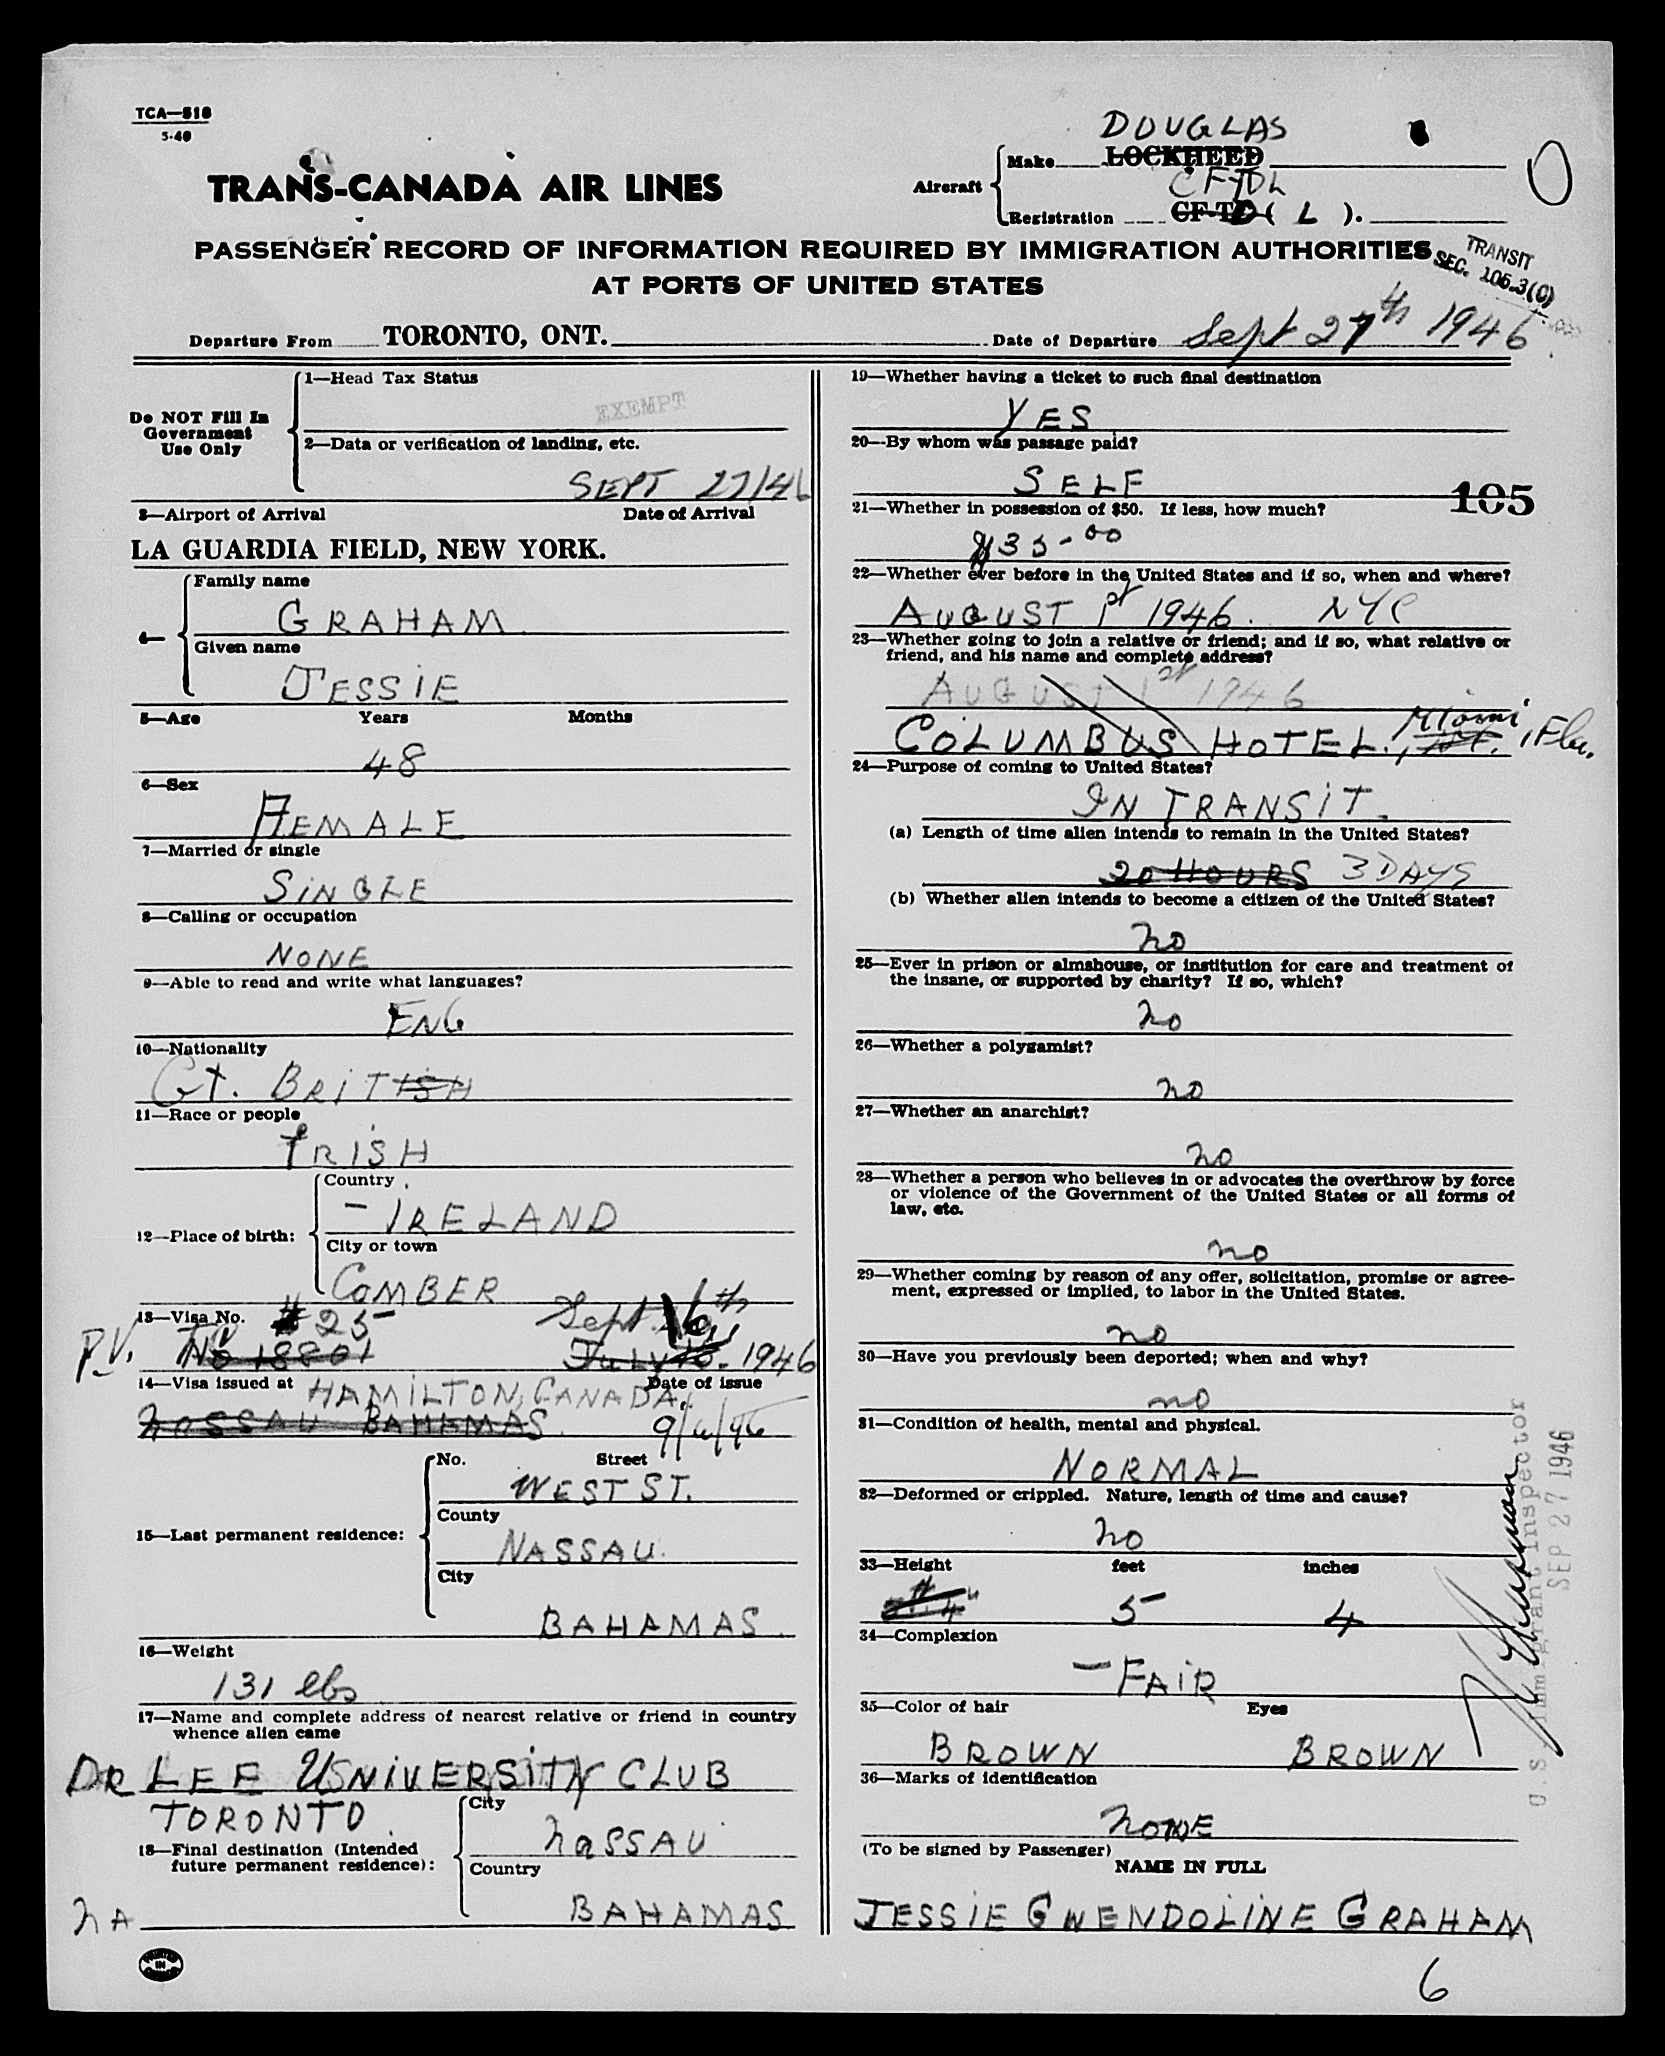 TCA—518
5-46
DOUGLAS
TRANS-CANADA AIR LINES
Aircraft
Make LOCKHEED
CFTDL
Registration CF-TD ( L ).
PASSENGER RECORD OF INFORMATION REQUIRED BY IMMIGRATION AUTHORITIES
AT PORTS OF UNITED STATES
TRANSIT
SEC. 106.3(C)
Departure From TORONTO, ONT. Date of Departure Sept 27th 1946.
Do NOT Fill In
Government
Use Only
1—Head Tax Status
EXEMPT
2—Data or verification of landing, etc.
SEPT 27/46
3—Airport of Arrival Date of Arrival
LA GUARDIA FIELD, NEW YORK.
4—
Family name
GRAHAM
Given name
JESSIE
5—Age Years Months
48
6—Sex
FEMALE
7—Married or single
SINGLE
8—Calling or occupation
NONE
9—Able to read and write what languages?
ENG
10—Nationality
Gt. BRITISH
11—Race or people
IRISH
12—Place of birth:
Country
– IRELAND
City or town
COMBER
13—Visa No. #25 Sept 16th
P.V. No 18801 July 1946
14—Visa issued at HAMILTON, CANADA. Date of issue
NASSAU BAHAMAS.
15—Last permanent residence:
No. Street
WEST ST.
County
NASSAU.
City
BAHAMAS.
16—Weight
131 lbs
17—Name and complete address of nearest relative or friend in country
whence alien came
DR LEE UNIVERSITY CLUB
TORONTO.
18—Final destination (Intended
future permanent residence):
City
NASSAU
Country
NA BAHAMAS
19—Whether having a ticket to such final destination
YES
20—By whom was passage paid?
SELF
105
21—Whether in possession of $50. If less, how much?
$35-00
22—Whether ever before in the United States and if so, when and where?
AUGUST 1st 1946. NYC
23—Whether going to join a relative or friend; and if so, what relative or
friend, and his name and complete address?
AUGUST 1st 1946
COLUMBUS HOTEL., Miami, Fla.
24—Purpose of coming to United States?
IN TRANSIT.
(a) Length of time alien intends to remain in the United States?
20 HOURS 3 DAYS
(b) Whether alien intends to become a citizen of the United States?
no
25—Ever in prison or almshouse, or institution for care and treatment of
the insane, or supported by charity? If so, which?
no
26—Whether a polygamist?
no
27—Whether an anarchist?
no
28—Whether a person who believes in or advocates the overthrow by force
or violence of the Government of the United States or all forms of
law, etc.
no
29—Whether coming by reason of any offer, solicitation, promise or agree-
ment, expressed or implied, to labor in the United States.
no
30—Have you previously been deported; when and why?
no
31—Condition of health, mental and physical.
NORMAL
32—Deformed or crippled. Nature, length of time and cause?
no
33—Height feet inches
5 4
34—Complexion
– FAIR
35—Color of hair Eyes
BROWN BROWN
36—Marks of identification
NONE
(To be signed by Passenger)
NAME IN FULL
JESSIE GWENDOLINE GRAHAM
U.S. Immigrant Inspector
SEP 27 1946
6